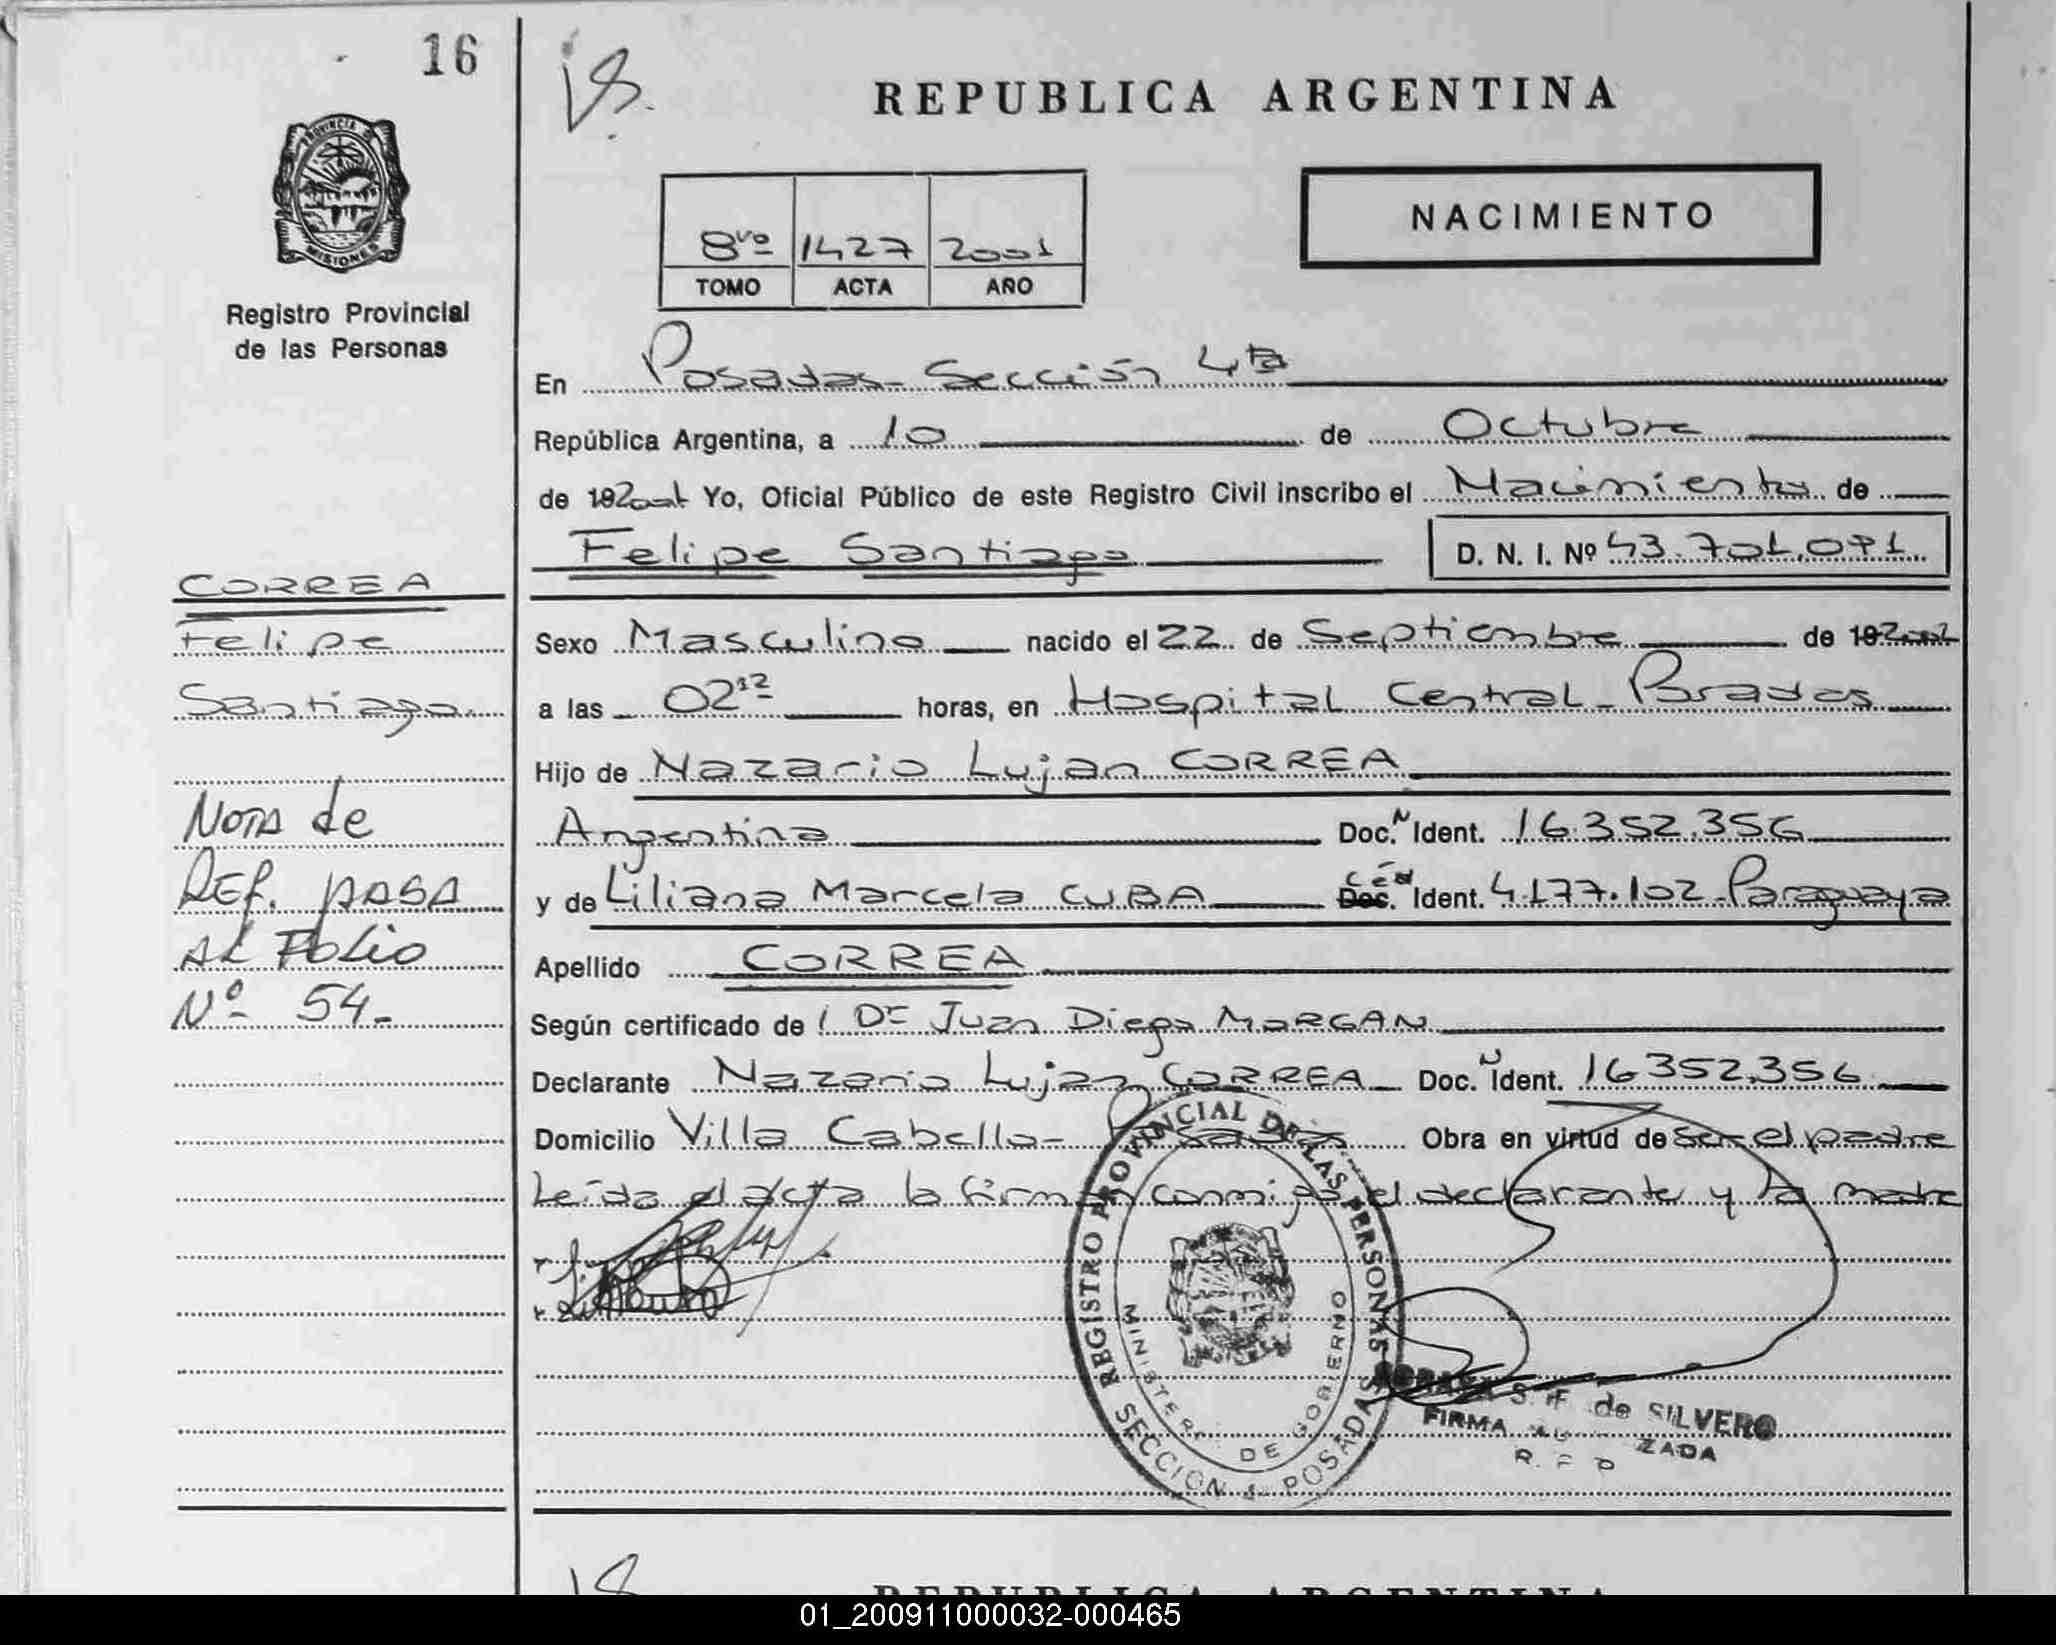 16
REPUBLICA ARGENTINA
PROVINCIA D
MISIONES
Registro Provincial
de las Personas
NACIMIENTO
8vo 1427 2001
TOMO ACTA AÑO
En Posadas - Sección 4ta
República Argentina, a 10 de Octubre
de 192001 Yo, Oficial Público de este Registro Civil inscribo el Nacimiento de
Felipe Santiago D. N. I. Nº 43.701.071
CORREA
Felipe
Santiago
Sexo Masculino nacido el 22 de Septiembre de 192001
a las 02 12 horas, en Hospital Central - Posadas
Hijo de Nazario Lujan CORREA
Argentina Doc. N Ident. 16.352.356
y de Liliana Marcela CUBA Doc. Céd Ident. 4.177.102 - Paraguaya
Apellido CORREA
Según certificado de Juan Diego MORGAN
Declarante Nazario Lujan CORREA Doc. N Ident. 16.352.356
Domicilio Villa Cabello - Obra en virtud de ser el padre
Leída el acta la firman conmigo el declarante y la madre
NOTA de
REF. PASA
AL FOLIO
Nº 54-
REGISTRO PROVINCIAL DE LAS PERSONAS
MINISTERIO DE GOBIERNO
SECCION 4 POSADAS
S. F. de SILVERO
FIRMA ZADA
R. P
REPUBLICA ARGENTINA
01_200911000032-000465